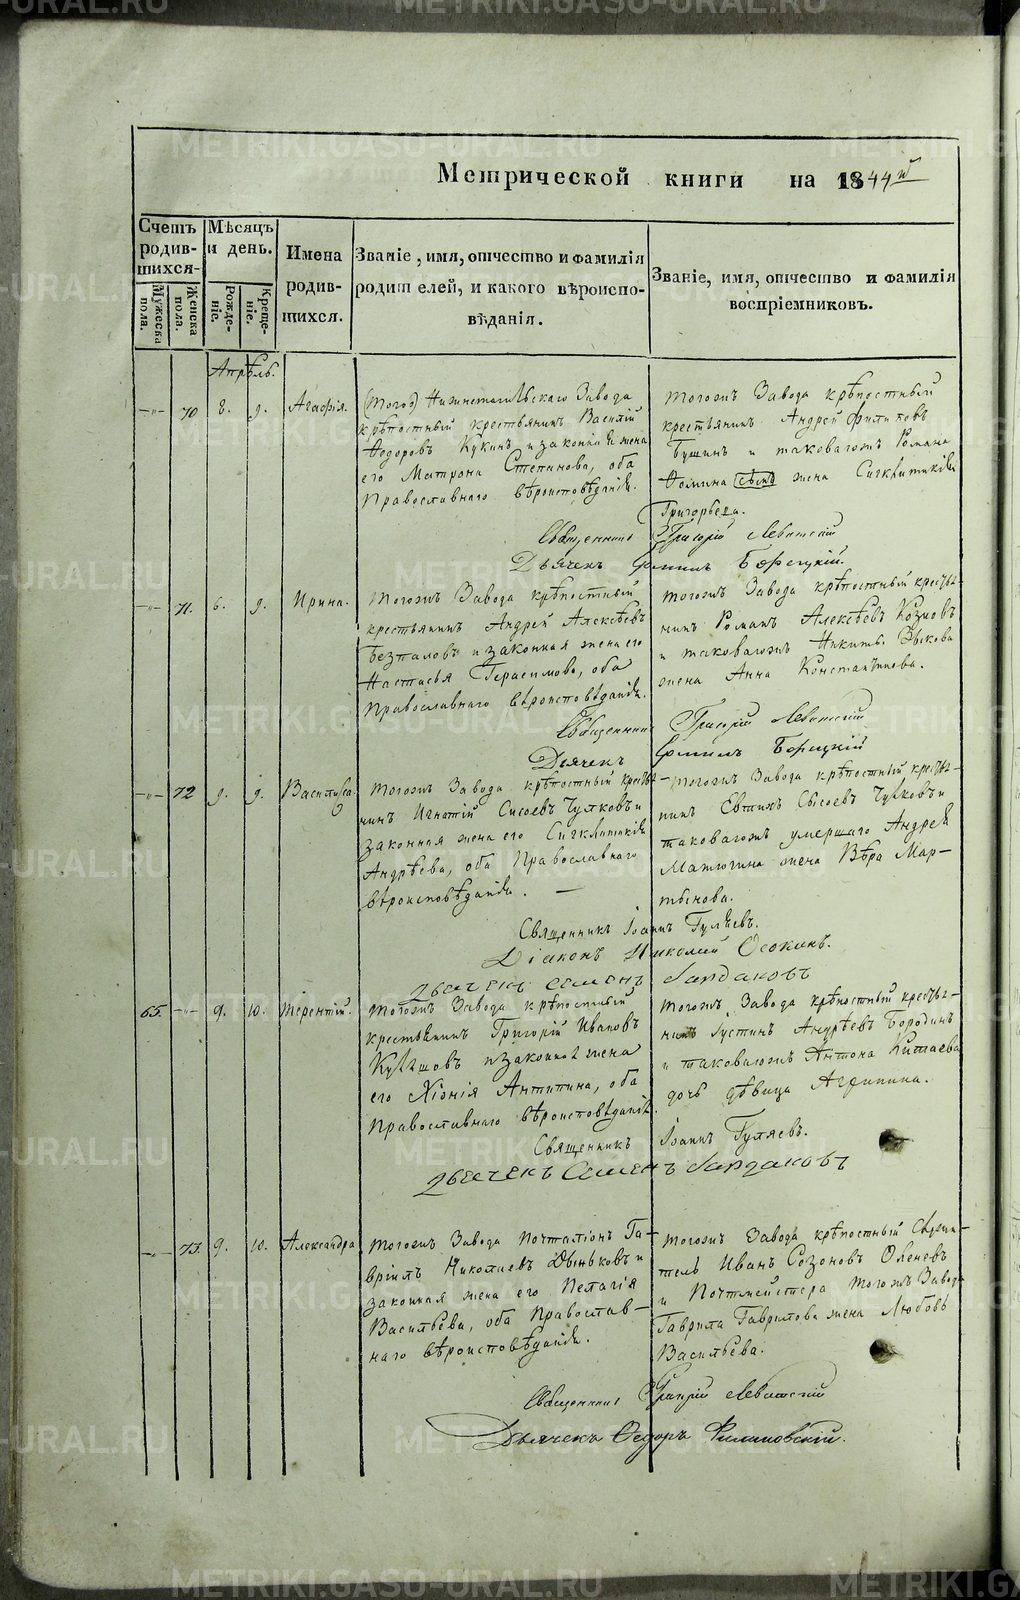 METRIKI.GASO-URAL.RU
Метрической книги на 1844й
Счетъ родив-шихся.
Мужеска пола.
Женска пола.
Мѣсяцъ и день.
Рожде-ніе.
Креще-ніе.
Имена родив-шихся.
Званіе, имя, отчество и фамилія
родителей, и какого вѣроиспо-
вѣданія.
Званіе, имя, отчество и фамилія
воспріемниковъ.
Апрѣль.
-"- 70 8. 9. Агафія.
(Тогоз) Нижнетагильскаго Завода
крѣпостный крестьянинъ Василій
Ѳедоровъ Кукинъ и законная жена
его Матрона Степанова, оба
Православнаго вѣроисповѣданія.
Тогожъ Завода крѣпостный
крестьянинъ Андрей Филиповъ
Бушинъ и таковагожъ Романа
Ѳомина жена Сигклитикія
Григорьева.
Священникъ Григорій Левитскій
Дьячекъ Ермилъ Борецкій.
-"- 71. 6. 9. Ирина.
Тогожъ Завода крѣпостный
крестьянинъ Андрей Алексѣевъ
Безпаловъ и законная жена его
Настасья Герасимова, оба
Православнаго вѣроисповѣданія.
Тогожъ Завода крѣпостный крестья-
нинъ Романъ Алексѣевъ Козловъ
и таковагожъ Никиты Зыкова
жена Анна Константинова.
Священникъ Григорій Левитскій
Дьячекъ Ермилъ Борецкій
-"- 72 9. 9. Василиса.
Тогожъ Завода крѣпостный крестья-
нинъ Игнатій Сысоевъ Чулковъ и
законная жена его Сигклитикія
Андрѣева, оба Православнаго
вѣроисповѣданія. —
Тогожъ Завода крѣпостный крестья-
нинъ Евтихъ Сысоевъ Чулковъ и
таковагожъ умершаго Андрея
Матюгина жена Вѣра Мар-
тынова.
Священникъ Іоаннъ Гуляевъ.
Діаконъ Николай Осокинъ.
Дьячекъ Семенъ Лапдаковъ
65. -"- 9. 10. Терентій.
Тогожъ Завода крѣпостный
крестьянинъ Григорій Ивановъ
и законная жена
его Хіонія Антипина, оба
Православнаго вѣроисповѣданія.
Тогожъ Завода крѣпостный крестья-
нинъ Густинъ Андрѣевъ Бородинъ
и таковагожъ Антона Китаева
дочь дѣвица Агрипина.
Священникъ Іоаннъ Гуляевъ.
Дьячекъ Семенъ Лапдаковъ
-"- 73. 9. 10. Александра
Тогожъ Завода Почталіонъ Га-
вріилъ Николаевъ Дыньковъ и
законная жена его Пелагія
Васильева, оба Православ-
наго вѣроисповѣданія.
Тогожъ Завода крѣпостный Служи-
тель Иванъ Созоновъ Оленевъ
и Почтмейстера тогожъ Завода
Гаврила Гаврилова жена Любовь
Васильева.
Священникъ Григорій Левитскій
Дьячекъ Ѳедоръ Филиповскій.